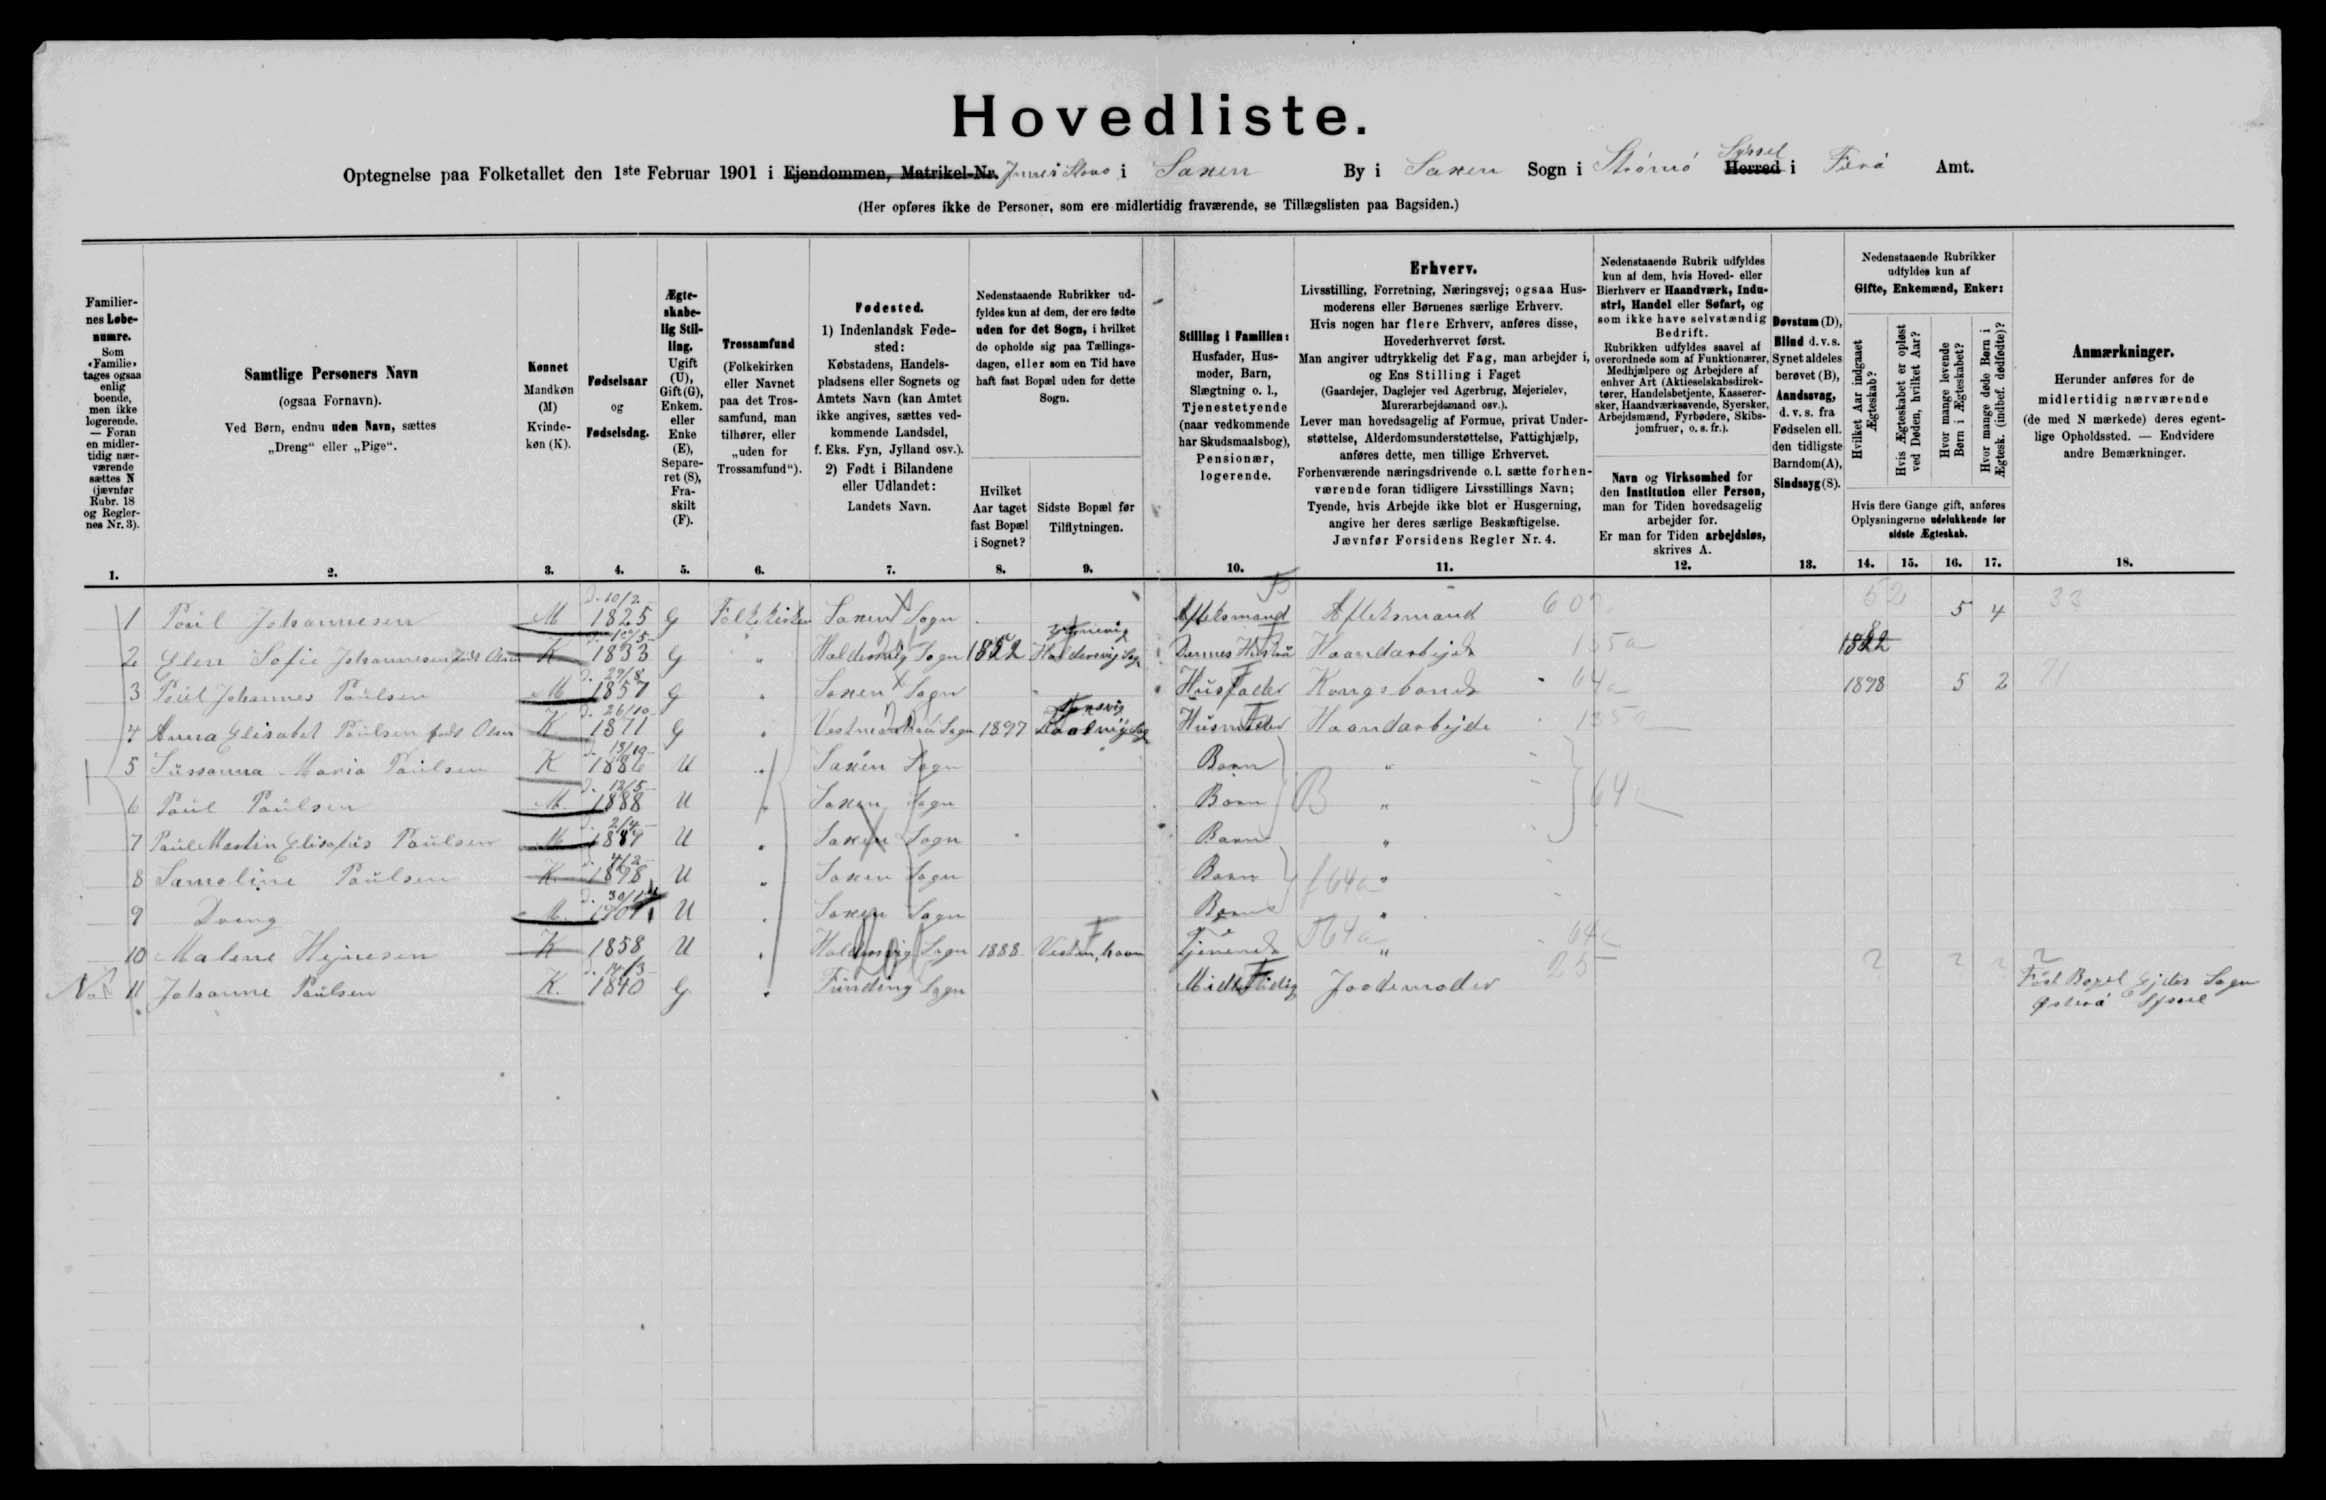 Hovedliste.
Optegnelse paa Folketallet den 1ste Februar 1901 i Ejendommen, Matrikel-Nr. i Saxen By i Saxen Sogn i Strömö Herred Syssel i Färö Amt.
(Her opføres ikke de Personer, som ere midlertidig fraværende, se Tillægslisten paa Bagsiden.)
Familiernes Løbenumre.
Som «Familie» tages ogsaa enlig boende, men ikke logerende. — Foran en midlertidig nærværende sættes N (jævnfør Rubr. 18 og Reglernes Nr. 3).
1.
Samtlige Personers Navn
(ogsaa Fornavn).
Ved Børn, endnu uden Navn, sættes
„Dreng“ eller „Pige“.
2.
Kønnet
Mandkøn (M)
Kvindekøn (K).
3.
Fødselsaar
og
Fødselsdag.
4.
Ægteskabelig Stilling.
Ugift (U), Gift (G), Enkem. eller Enke (E), Separeret (S), Fraskilt (F).
5.
Trossamfund
(Folkekirken eller Navnet paa det Trossamfund, man tilhører, eller „uden for Trossamfund“).
6.
Fødested.
1) Indenlandsk Fødested:
Købstadens, Handelspladsens eller Sognets og Amtets Navn (kan Amtet ikke angives, sættes vedkommende Landsdel, f. Eks. Fyn, Jylland osv.).
2) Født i Bilandene eller Udlandet:
Landets Navn.
7.
Nedenstaaende Rubrikker udfyldes kun af dem, der ere fødte uden for det Sogn, i hvilket de opholde sig paa Tællingsdagen, eller som en Tid have haft fast Bopæl uden for dette Sogn.
Hvilket Aar taget fast Bopæl i Sognet?
8.
Sidste Bopæl før Tilflytningen.
9.
Stilling i Familien:
Husfader, Husmoder, Barn, Slægtning o. l., Tjenestetyende (naar vedkommende har Skudsmaalsbog), Pensionær, logerende.
10.
Erhverv.
Livsstilling, Forretning, Næringsvej; ogsaa Husmoderens eller Børnenes særlige Erhverv.
Hvis nogen har flere Erhverv, anføres disse, Hovederhvervet først.
Man angiver udtrykkelig det Fag, man arbejder i, og Ens Stilling i Faget
(Gaardejer, Daglejer ved Agerbrug, Mejerielev, Murerarbejdsmand osv.).
Lever man hovedsagelig af Formue, privat Understøttelse, Alderdomsunderstøttelse, Fattighjælp, anføres dette, men tillige Erhvervet.
Forhenværende næringsdrivende o. l. sætte forhenværende foran tidligere Livsstillings Navn;
Tyende, hvis Arbejde ikke blot er Husgerning, angive her deres særlige Beskæftigelse.
Jævnfør Forsidens Regler Nr. 4.
11.
Nedenstaaende Rubrik udfyldes kun af dem, hvis Hoved- eller Bierhverv er Haandværk, Industri, Handel eller Søfart, og som ikke have selvstændig Bedrift.
Rubrikken udfyldes saavel af overordnede som af Funktionærer, Medhjælpere og Arbejdere af enhver Art (Aktieselskabsdirektører, Handelsbetjente, Kasserersker, Haandværkssvende, Syersker, Arbejdsmænd, Fyrbødere, Skibsjomfruer, o. s. fr.).
Navn og Virksomhed for den Institution eller Person, man for Tiden hovedsagelig arbejder for.
Er man for Tiden arbejdsløs, skrives A.
12.
Døvstum (D), Blind d. v. s. Synet aldeles berøvet (B), Aandssvag, d. v. s. fra Fødselen ell. den tidligste Barndom (A), Sindssyg (S).
13.
Nedenstaaende Rubrikker udfyldes kun af Gifte, Enkemænd, Enker:
Hvilket Aar indgaaet Ægteskab?
Hvis Ægteskabet er opløst ved Døden, hvilket Aar?
Hvor mange levende Børn i Ægteskabet?
Hvor mange døde Børn i Ægtesk. (indbef. dødfødte)?
Hvis flere Gange gift, anføres Oplysningerne udelukkende for sidste Ægteskab.
14. 15. 16. 17.
Anmærkninger.
Herunder anføres for de midlertidig nærværende (de med N mærkede) deres egentlige Opholdssted. — Endvidere andre Bemærkninger.
18.
1 Poul Johannesen M d. 10/2 1825 G Folkekirken Saxen Sogn Aftelsmand Aftelsmand 52 5 4 33
2 Elen Sofie Johannesen født Olsen K 1833 G " Haldersvig Sogn 1852 Haldersvig Sogn Dennes Hustru Haandarbejde 135a
3 Poul Johannes Poulsen M d. 29/8 1857 G " Saxen Sogn Husfader Kongsbonde 64a 1898 5 2 71
4 Anna Elisabet Poulsen født Olsen K d. 26/10 1871 G " Sogn 1897 Husmoder Haandarbejde 135a
5 Sussanna Maria Poulsen K 1886 U " Saxen Sogn Barn "
6 Poul Poulsen M. d. 12/5 1888 U " Saxen Sogn Barn B " 64a
7 Poul Martin Poulsen M 2/4 U " Saxen Sogn Barn "
8 Samoline Poulsen K. 4/2 1898 U " Saxen Sogn Barn 64a "
9 Dreng M. d. 30/1 1901 U " Saxen Sogn Barn "
10 Malene Hejnesen K 1858 U " Haldersvig Sogn 1888 Tjenende 64a " 64a
N 11 Johanne Poulsen K. 1840 G " Funding Sogn Midlertidig Jordemoder 25 ? ? ? Fast Bopæl Ejdes Sogn
Østerö Syssel